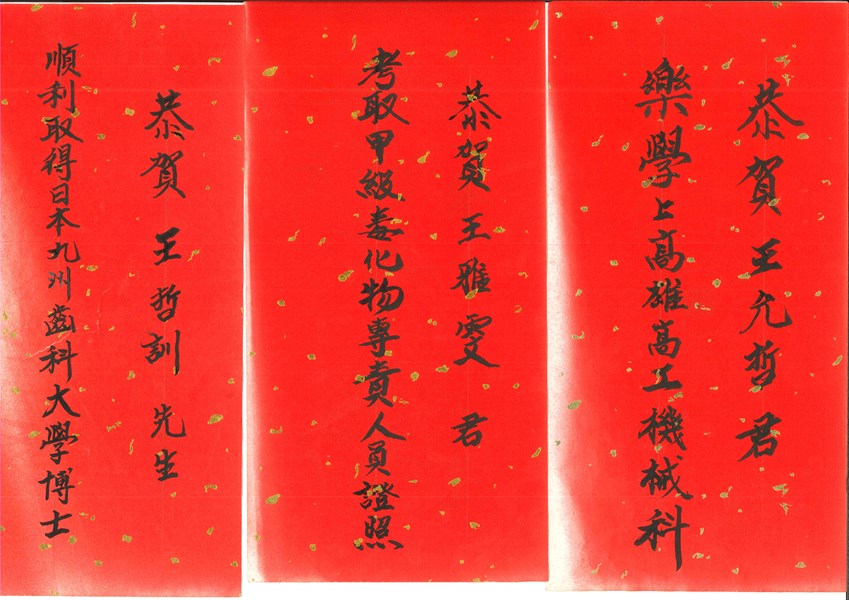 恭賀王允哲君
樂學上高雄高工機械科
恭賀王雅雯君
考取甲級毒化物專責人員證照
恭賀王哲訓先生
順利取得日本九州齒科大學博士